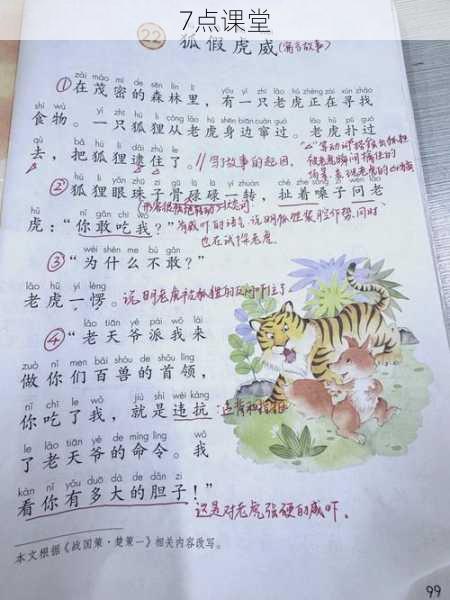 7点课堂
22 狐假虎威(寓言故事)
zài mào mì de sēn lín lǐ yǒu yì zhī lǎo hǔ zhèng zài xún zhǎo
①在茂密的森林里,有一只老虎正在寻找
shí wù yì zhī hú li cóng lǎo hǔ shēn biān cuàn guò lǎo hǔ pū guò
食物。一只狐狸从老虎身边窜过。老虎扑过
qù bǎ hú li dǎi zhù le
去,把狐狸逮住了。//写了故事的起因。
②狐狸眼珠子骨碌碌一转,扯着嗓子问老
hǔ nǐ gǎn chī wǒ
虎:“你敢吃我?”
也在试探老虎
wèi shén me bù gǎn
③“为什么不敢?”
lǎo hǔ yí lèng
老虎一愣。说明老虎被狐狸的反问吓住了
lǎo tiān yé pài wǒ lái
④“老天爷派我来
zuò nǐ men bǎi shòu de shǒu lǐng
做你们百兽的首领,
nǐ chī le wǒ jiù shì wéi kàng
你吃了我,就是违抗
le lǎo tiān yé de mìng lìng wǒ
了老天爷的命令。我
kàn nǐ yǒu duō dà de dǎn zi
看你有多大的胆子!”
这是对老虎强硬的威吓。
本文根据《战国策·楚策一》相关内容改写。
99